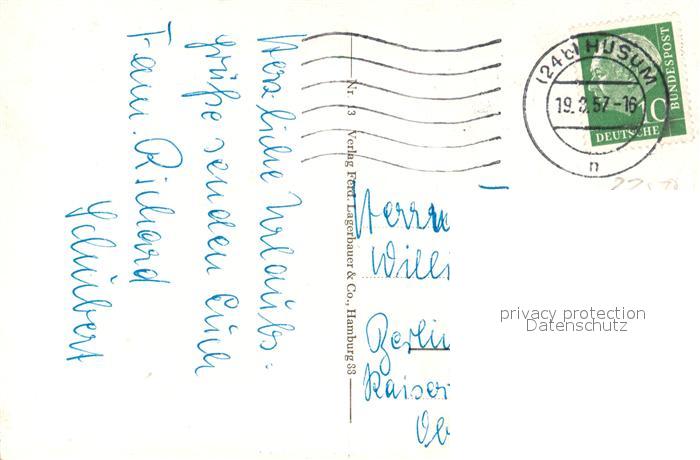 Herzliche Urlaubs-
grüße senden Euch
Fam. Richard
Schubert
Nr. 13 Verlag Ferd. Lagerbauer & Co., Hamburg 33
(24b) HUSUM
19.3.57-16
n
10
DEUTSCHE BUNDESPOST
Herrn
Willi
Berlin
Kaiser
privacy protection
Datenschutz